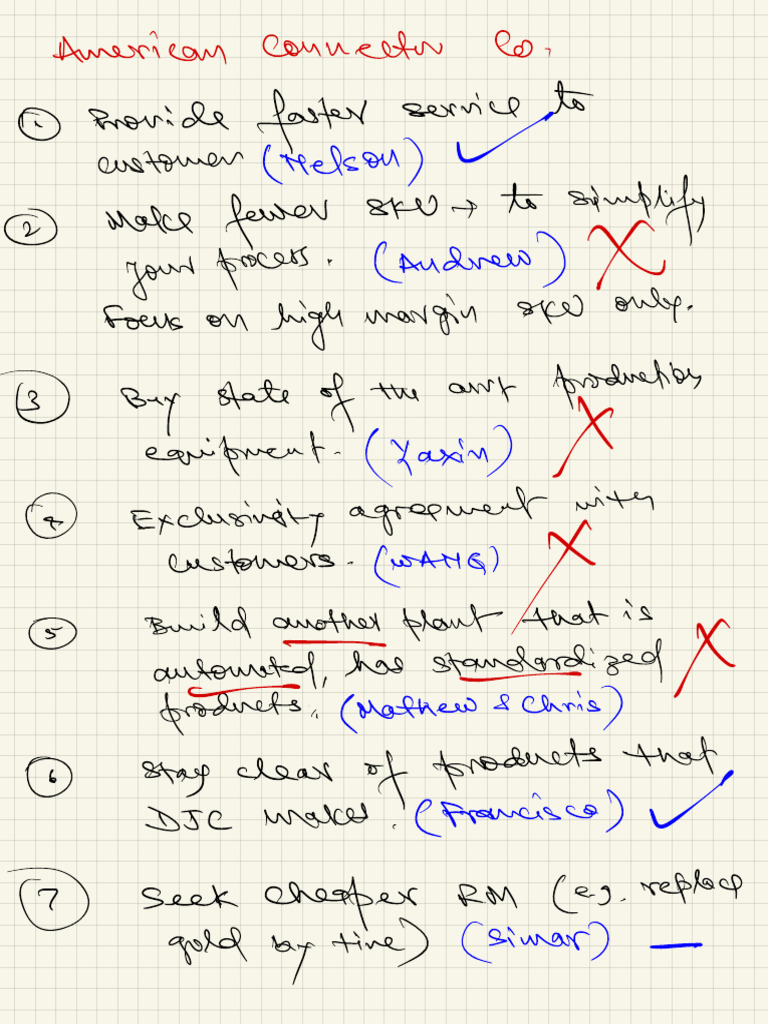 American Connector Co.
① Provide faster service to
customer (Nelson) ✓
② Make fewer SKU → to simplify
your process. (Andrew) X
Focus on high margin SKU only.
③ Buy state of the art production
equipment. (Yaxin) X
④ Exclusivity agreement with
customers. (WANG) X
⑤ Build another plant that is
automated, has standardized X
products. (Mathew & Chris)
⑥ Stay clear of products that
DJC makes. (Francisco) ✓
⑦ Seek cheaper RM (e.g. replace
gold by tine) (Simar) —